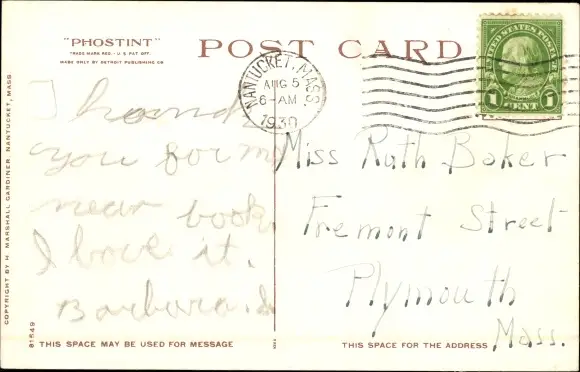 "PHOSTINT"
TRADE MARK REG. - U.S. PAT. OFF.
MADE ONLY BY DETROIT PUBLISHING CO
POST CARD
NANTUCKET, MASS.
AUG 5
6-AM
1930
UNITED STATES POSTAGE
1 CENT 1
I
you for my
new book.
I love it.
Barbara.
Miss Ruth Baker
Fremont Street
Plymouth
Mass.
COPYRIGHT BY H. MARSHALL GARDINER, NANTUCKET, MASS.
81549
THIS SPACE MAY BE USED FOR MESSAGE
THIS SPACE FOR THE ADDRESS